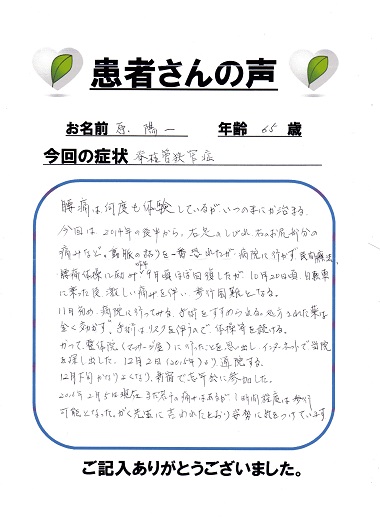 患者さんの声
お名前 原 陽一 年齢 65 歳
今回の症状 脊柱管狭窄症
腰痛は何度も体験しているが、いつのまにか治まる。
今回は、2014年の後半から、右足のしびれ、右のお尻部分の
痛みなど。 を一番恐れたが病院に行かず
腰痛体操に励み、9月頃ほぼ回復したが、10月20日頃、自転車
に乗った後、激しい痛みを伴い、歩行困難となる。
11月初め、病院に行ってみる。手術をすすめられる。処方された薬は
全く効かず、手術はリスクを伴うので、体操等を続ける。
かつて整体院(マッサージ屋)に行ったことを思い出し、インターネットで当院
を探し出した。12月2日(2015年)より通院する。
12月下旬かなりよくなり、新宿で忘年会に参加した。
2月5日現在、まだ若干の痛みはあるが、1時間程度は歩行
可能となった。 先生に言われたとおり姿勢に気をつけています
ご記入ありがとうございました。